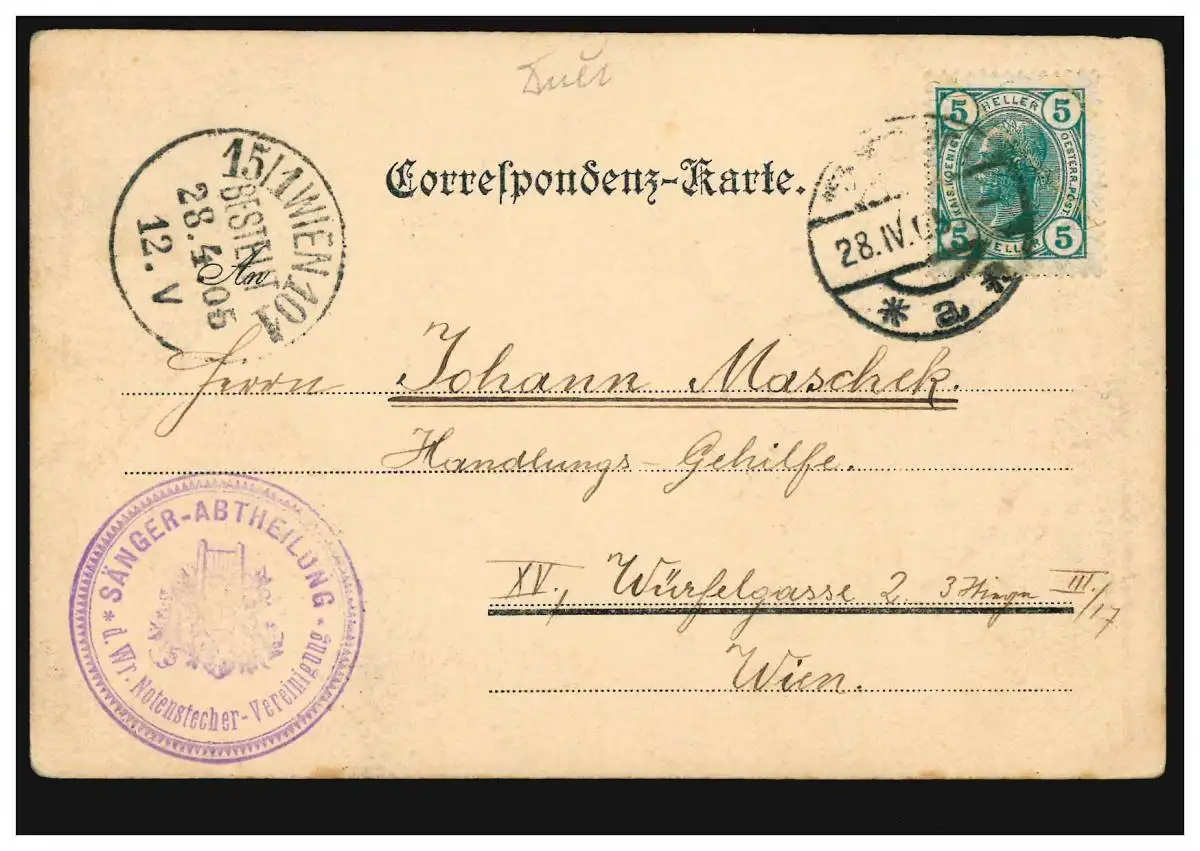 Duett
Correspondenz-Karte.
15/1 WIEN 101
BESTELLT
28.4.05
12. V
An
5 HELLER 5
OESTERR. POST.
5 HELLER 5
28. IV.
* a *
Herrn Johann Maschek.
Handlungs-Gehilfe.
XV., Würfelgasse 2 3 Stiege III./17
Wien.
* SÄNGER-ABTHEILUNG *
d. Wr. Notenstecher-Vereinigung